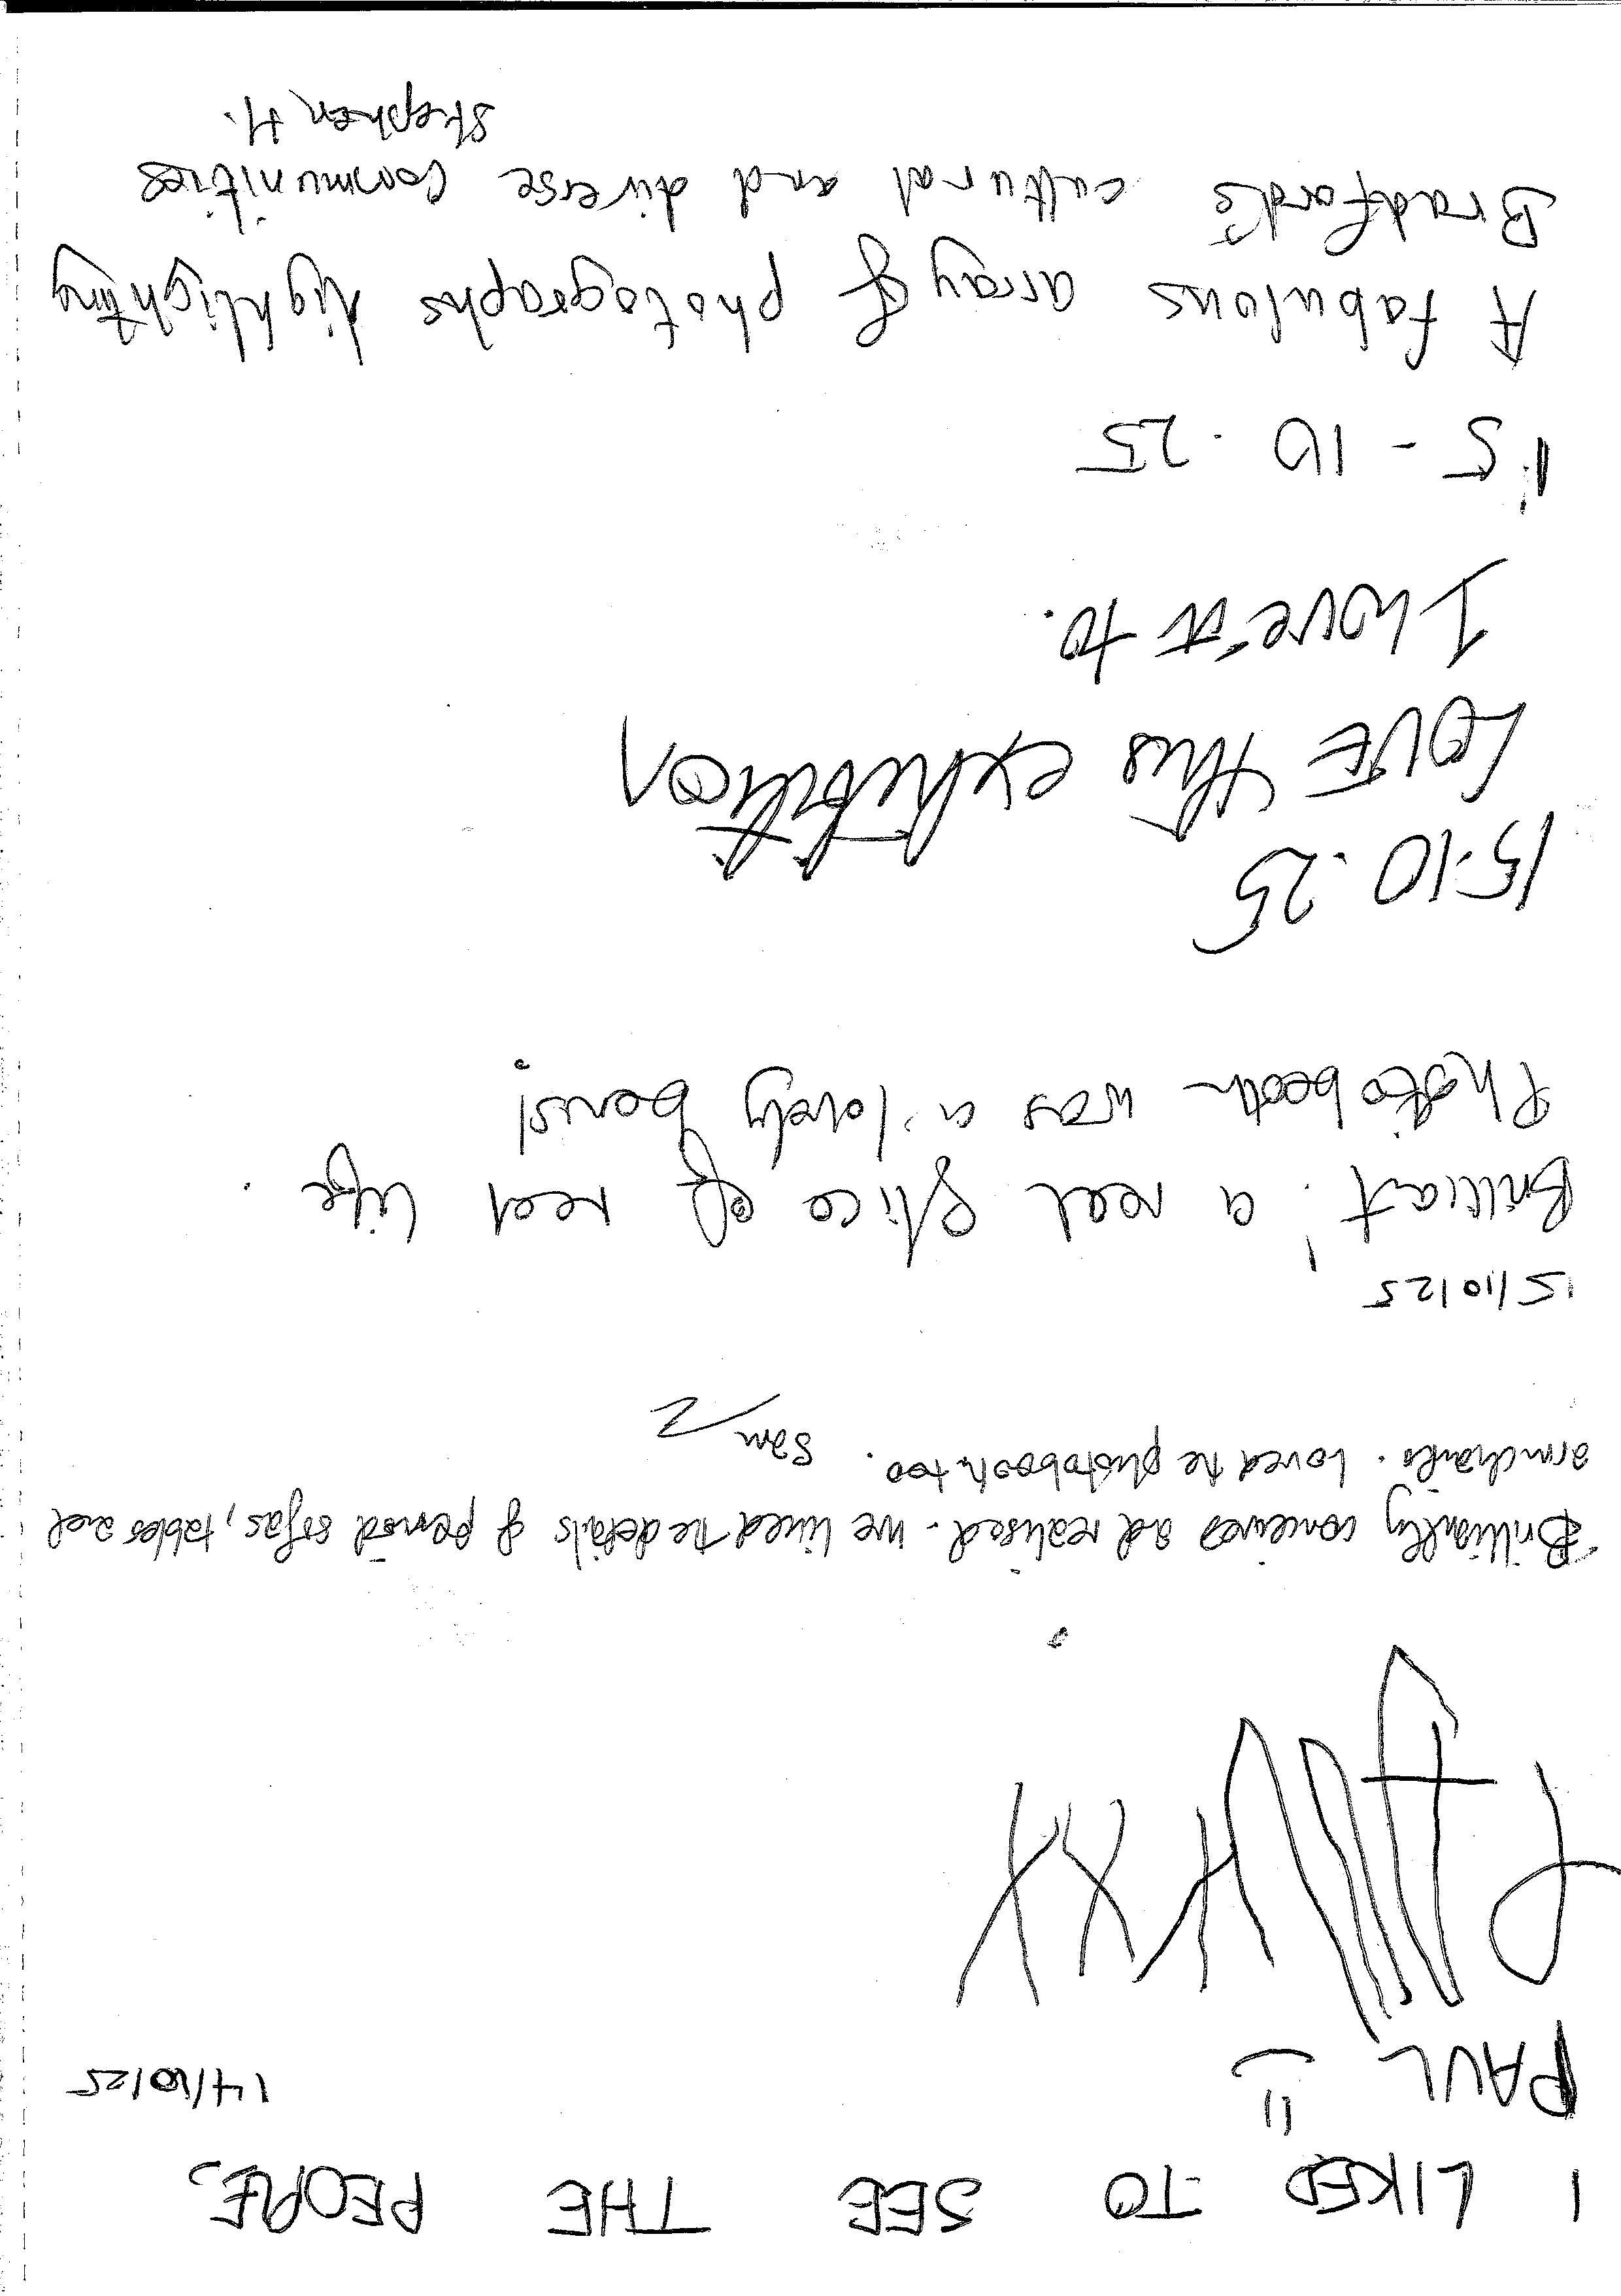 I LIKED TO SEE THE PEOPLE.
PAUL 14/10/25
Brilliantly conceived and realised. We liked the details of period sofas, tables and
armchairs. Loved the photobooth too. Sam
15/10/25
Brilliant! a real slice of real life.
Photobooth was a lovely bonus!
15.10.25
LOVE this exhibition
I love it to.
15-10.25
A fabulous array of photographs highlighting
Bradford's cultural and diverse communities
Stephen H.